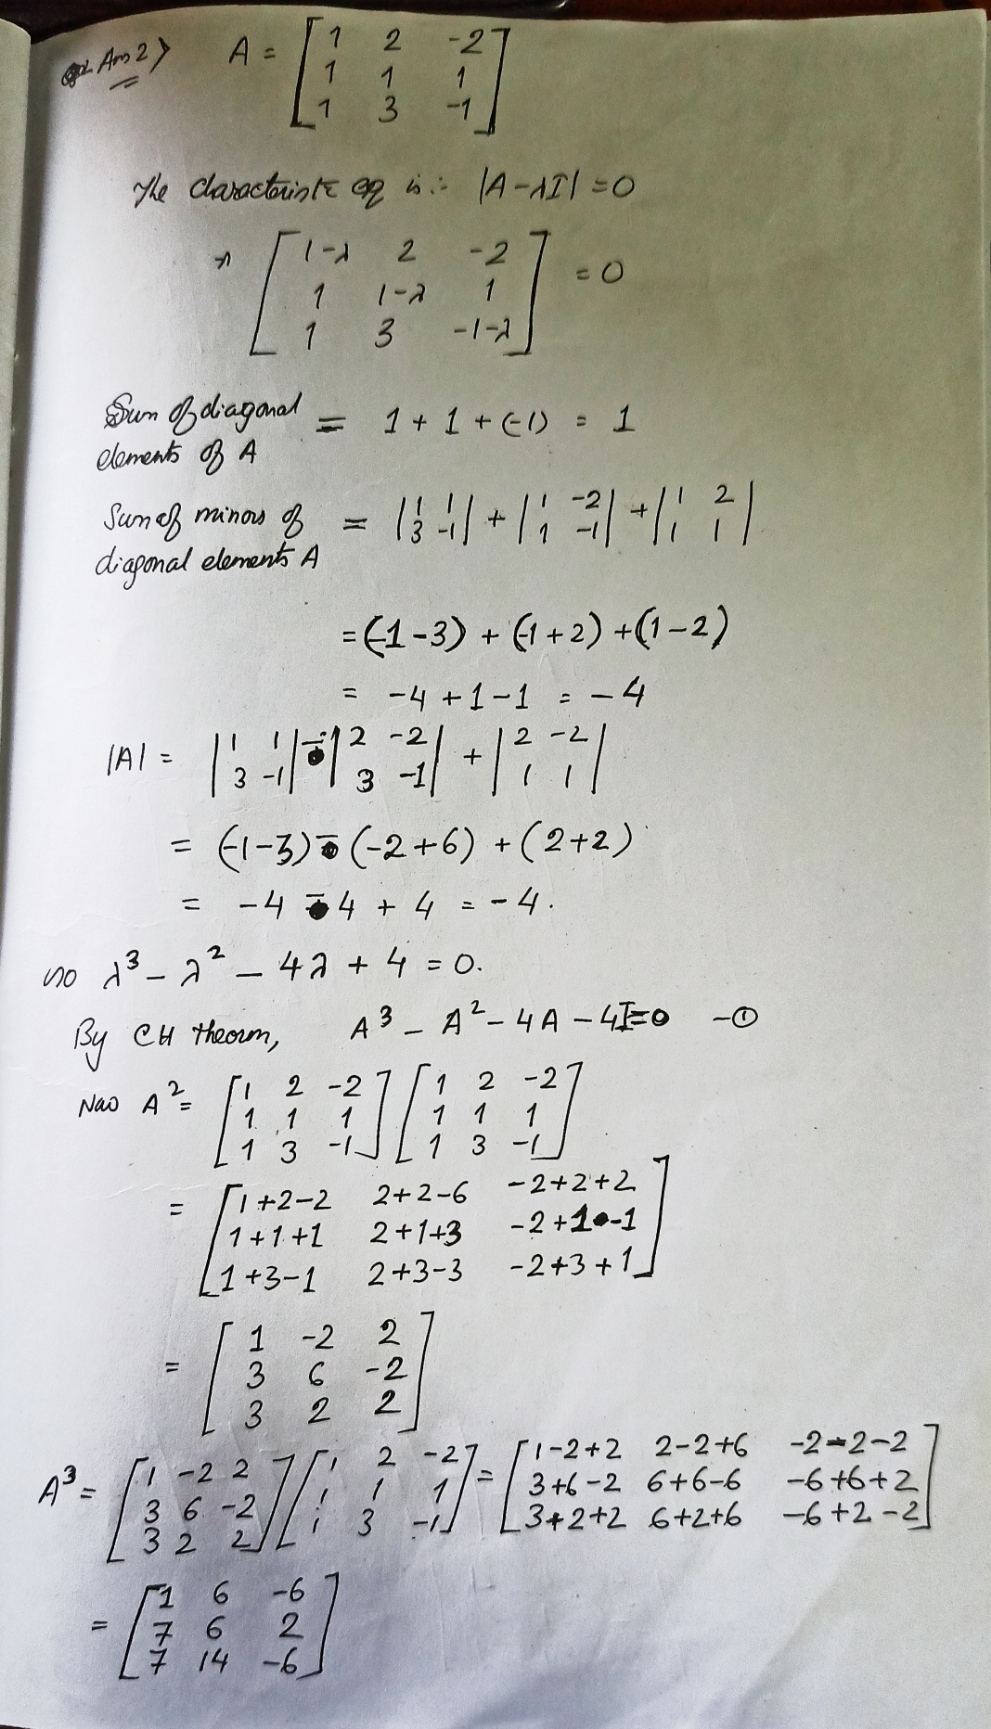 Ans 2> A = [1 2 -2; 1 1 1; 1 3 -1]
The characteriste eq is :- |A-λI| = 0
[1-λ 2 -2; 1 1-λ 1; 1 3 -1-λ] = 0
Sum of diagonal elements of A = 1 + 1 + (-1) = 1
Sum of minors of diagonal elements A = |1 1; 3 -1| + |1 -2; 1 -1| + |1 2; 1 1|
= (-1-3) + (-1+2) + (1-2)
= -4 + 1 - 1 = -4
|A| = |1 1; 3 -1| - |2 -2; 3 -1| + |2 -2; 1 1|
= (-1-3) - (-2+6) + (2+2)
= -4 - 4 + 4 = -4.
so λ³ - λ² - 4λ + 4 = 0.
By CH theorm, A³ - A² - 4A - 4I = 0 -①
Now A² = [1 2 -2; 1 1 1; 1 3 -1] [1 2 -2; 1 1 1; 1 3 -1]
= [1+2-2 2+2-6 -2+2+2; 1+1+1 2+1+3 -2+1-1; 1+3-1 2+3-3 -2+3+1]
= [1 -2 2; 3 6 -2; 3 2 2]
A³ = [1 -2 2; 3 6 -2; 3 2 2] [1 2 -2; 1 1 1; 1 3 -1] = [1-2+2 2-2+6 -2-2-2; 3+6-2 6+6-6 -6+6+2; 3+2+2 6+2+6 -6+2-2]
= [1 6 -6; 7 6 2; 7 14 -6]